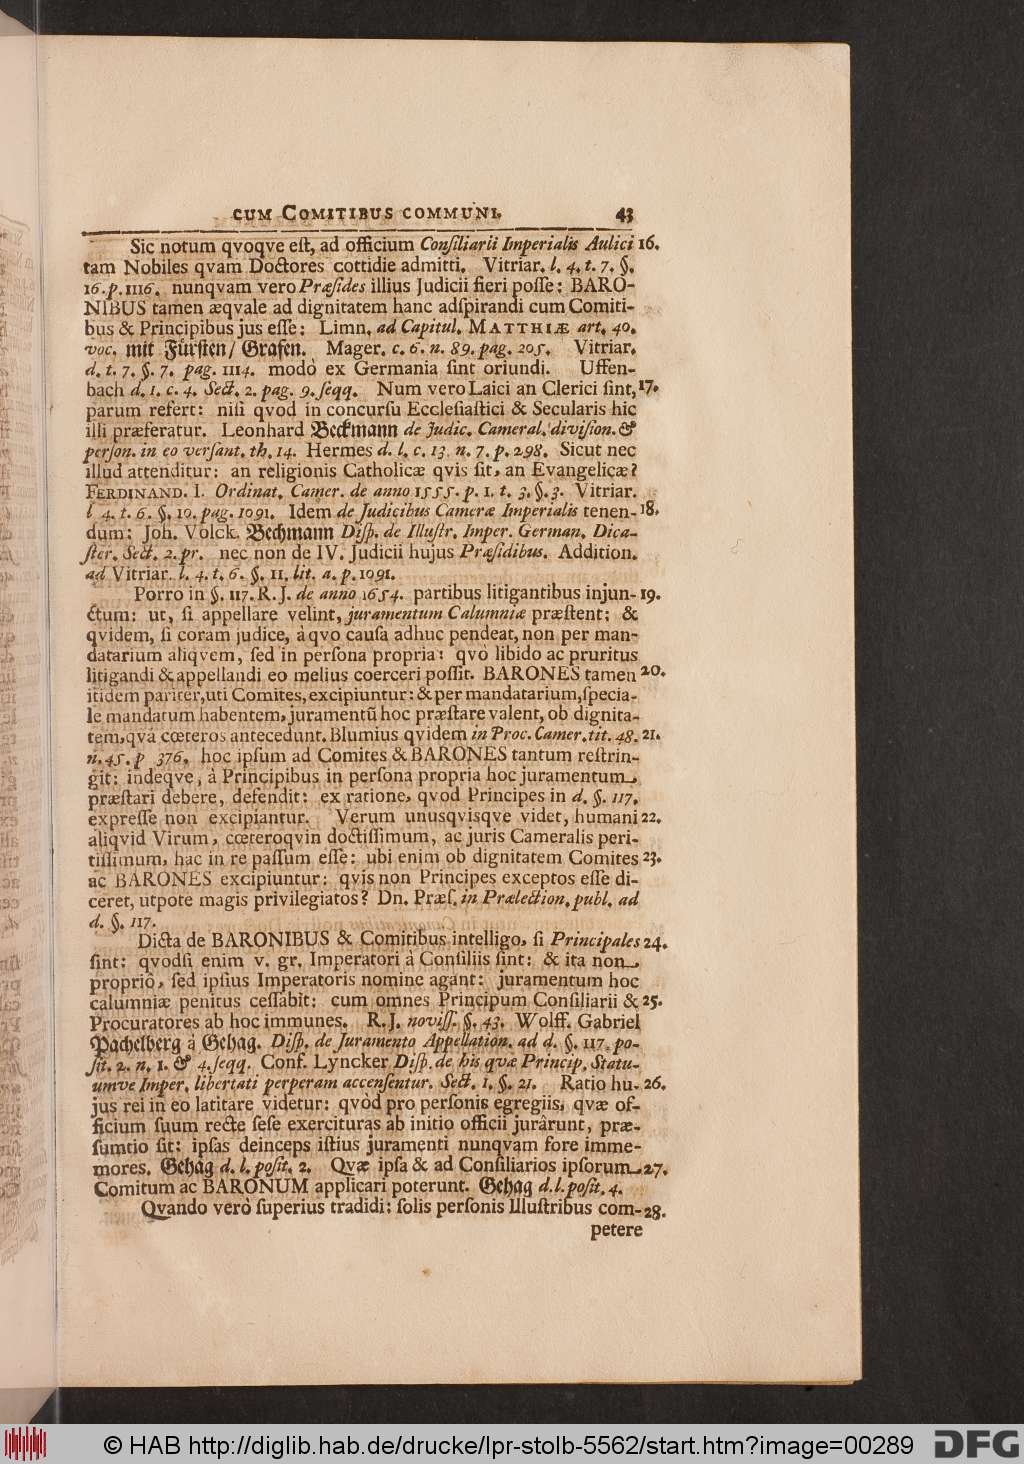 CUM COMITIBUS COMMUNI. 43
Sic notum qvoqve eſt, ad officium Conſiliarii Imperialis Aulici 16.
tam Nobiles qvam Doctores cottidie admitti. Vitriar. l. 4. t. 7. §.
16. p. 1116. nunqvam vero Præſides illius Judicii fieri poſſe: BARO-
NIBUS tamen æqvale ad dignitatem hanc adſpirandi cum Comiti-
bus & Principibus jus eſſe: Limn. ad Capitul. MATTHIÆ art. 40.
voc. mit Fürſten/ Grafen. Mager. c. 6. n. 89. pag. 205. Vitriar.
d. t. 7. §. 7. pag. 1114. modò ex Germania ſint oriundi. Uffen-
bach d. 1. c. 4. Sect. 2. pag. 9. ſeqq. Num vero Laici an Clerici ſint, 17.
parum refert: niſi qvod in concurſu Eccleſiaſtici & Secularis hic
illi præferatur. Leonhard Beckmann de Judic. Cameral. diviſion. &
perſon. in eo verſant. th. 14. Hermes d. l. c. 13. n. 7. p. 298. Sicut nec
illud attenditur: an religionis Catholicæ qvis ſit, an Evangelicæ?
FERDINAND. I. Ordinat. Camer. de anno 1555. p. 1. t. 3. §. 3. Vitriar.
l 4. t. 6. §. 10. pag. 1091. Idem de Judicibus Cameræ Imperialis tenen- 18.
dum: Joh. Volck. Bechmann Diſp. de Illuſtr. Imper. German. Dica-
ſter. Sect. 2. pr. nec non de IV. Judicii hujus Præſidibus. Addition.
ad Vitriar. l. 4. t. 6. §. 11. lit. a. p. 1091.
Porro in §. 117. R. J. de anno 1654. partibus litigantibus injun- 19.
ctum: ut, ſi appellare velint, juramentum Calumniæ præſtent: &
qvidem, ſi coram judice, à qvo cauſa adhuc pendeat, non per man-
datarium aliqvem, ſed in perſona propria: qvò libido ac pruritus
litigandi & appellandi eo melius coerceri poſſit. BARONES tamen 20.
itidem pariter, uti Comites, excipiuntur: & per mandatarium, ſpecia-
le mandatum habentem, juramentũ hoc præſtare valent, ob dignita-
tem, qvâ cœteros antecedunt. Blumius qvidem in Proc. Camer. tit. 48. 21.
n. 45. p 376. hoc ipſum ad Comites & BARONES tantum reſtrin-
git: indeqve, à Principibus in perſona propria hoc juramentum
præſtari debere, defendit: ex ratione, qvod Principes in d. §. 117.
expreſſe non excipiantur. Verum unusqvisqve videt, humani 22.
aliqvid Virum, cœteroqvin doctiſſimum, ac juris Cameralis peri-
tiſſimum, hac in re paſſum eſſe: ubi enim ob dignitatem Comites 23.
ac BARONES excipiuntur: qvis non Principes exceptos eſſe di-
ceret, utpote magis privilegiatos? Dn. Præſ. in Prælection. publ. ad
d. §. 117.
Dicta de BARONIBUS & Comitibus intelligo, ſi Principales 24.
ſint: qvodſi enim v. gr. Imperatori à Conſiliis ſint: & ita non
propriô, ſed ipſius Imperatoris nomine agant: juramentum hoc
calumniæ penitus ceſſabit: cum omnes Principum Conſiliarii & 25.
Procuratores ab hoc immunes. R. J. noviſſ. §. 43. Wolff. Gabriel
Pachelberg à Gehag. Diſp. de Juramento Appellation. ad d. §. 117. po-
ſit. 2. n. 1. & 4. ſeqq. Conf. Lyncker Diſp. de his qvæ Princip. Statu-
umve Imper. libertati perperam accenſentur. Sect. 1. §. 21. Ratio hu- 26.
jus rei in eo latitare videtur: qvòd pro perſonis egregiis, qvæ of-
ficium ſuum recte ſeſe exercituras ab initio officii jurârunt, præ-
ſumtio ſit: ipſas deinceps iſtius juramenti nunqvam fore imme-
mores. Gehag d. l. poſit. 2. Qvæ ipſa & ad Conſiliarios ipſorum 27.
Comitum ac BARONUM applicari poterunt. Gehag d. l. poſit. 4.
Qvando verò ſuperius tradidi: ſolis perſonis Illuſtribus com- 28.
petere
© HAB http://diglib.hab.de/drucke/lpr-stolb-5562/start.htm?image=00289 DFG